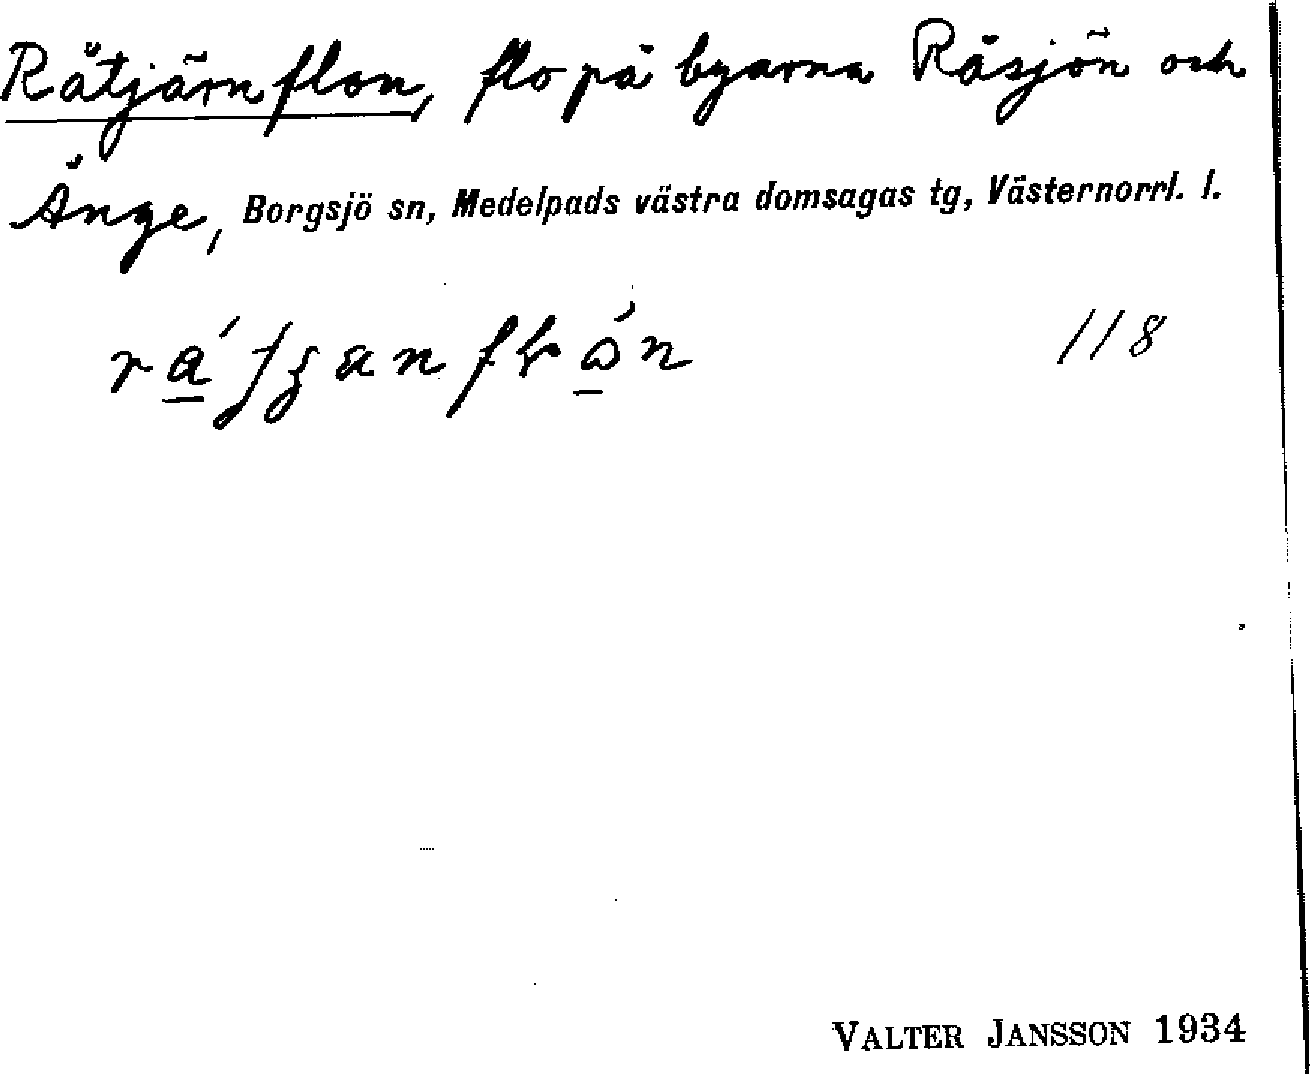 Råtjärnflon, flo på byarna Råsjön och
Ånge, Borgsjö sn, Medelpads västra domsagas tg, Västernorrl. l.
118
VALTER JANSSON 1934